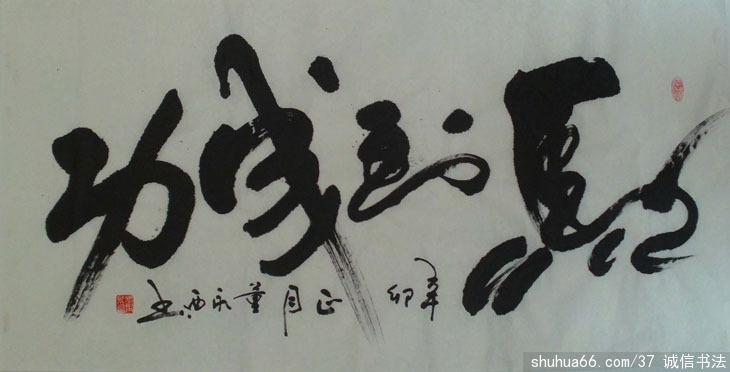 馬到成功
辛卯正月董西书
shuhua66.com/37 诚信书法